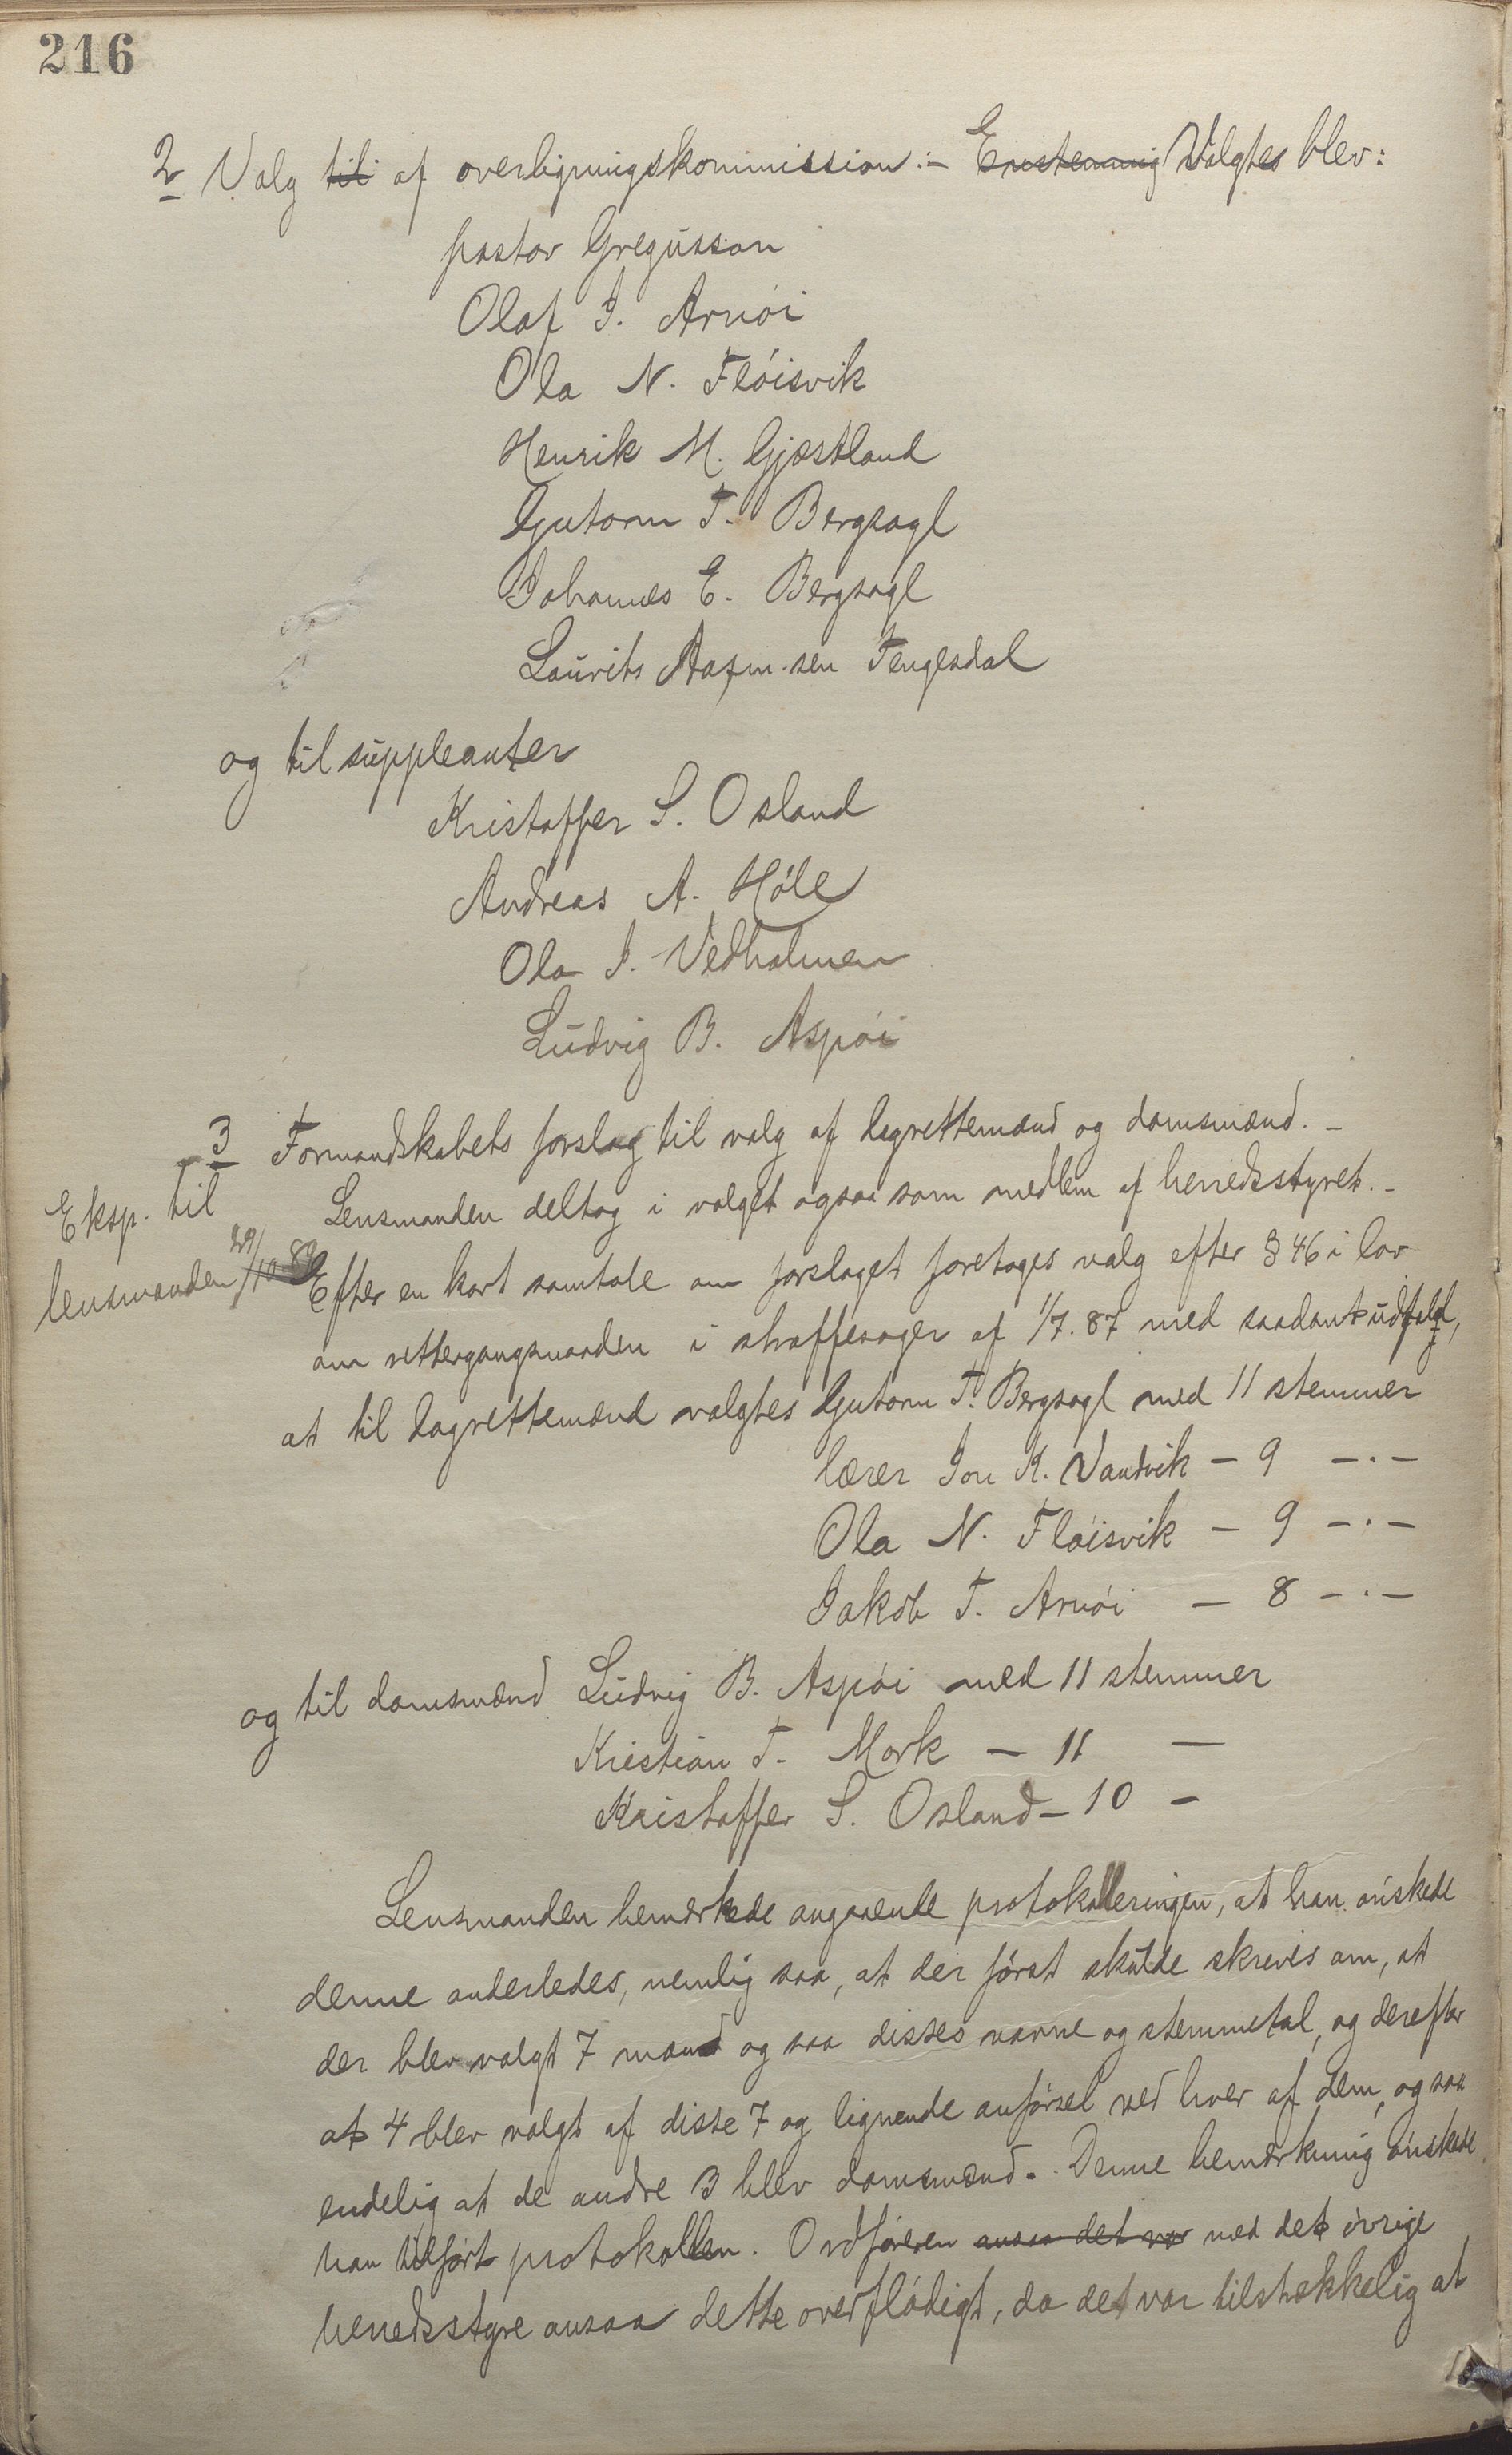 216
2 Valg ~~til~~ af overligningskommission:- ~~Enstemmig~~ Valgtes blev:
pastor Gregusson
Olaf I. Arnöi
Ola N. Flöisvik
Henrik M. Gjæstland
Gutorm T. Bergsagl
Johannes E. Bergsagl
Laurits Aasm.sen Tengesdal
og til suppleanter
Kristoffer S. Osland
Andreas A. Höle
Ola I. Vedholmen
Ludvig B. Aspöi
3 Formandskabets forslag til valg af lagrettemænd og domsmænd.-
Lensmanden deltog i valget ogsaa som medlem af herredsstyret.-
Eksp. til
lensmanden 29/10-89
Efter en kort samtale om forslaget foretoges valg efter § 46 i lov
om rettergangsmaaden i straffesager af 1/7.87 med saadant udfald,
at til lagrettemænd valgtes Gutorm T. Bergsagl med 11 stemmer
lærer Jon K. Vandvik - 9 -.-
Ola N. Flöisvik - 9 -.-
Jakob T. Arnöi - 8 -.-
og til domsmænd Ludvig B. Aspöi med 11 stemmer
Kristian T. Mork - 11 -
Kristoffer S. Osland - 10 -
Lensmanden bemærkede angaaende protokolleringen, at han önskede
denne anderledes, nemlig saa, at der först skulde skreves om, at
der blev valgt 7 mand og saa disses navne og stemmetal, og derefter
at 4 blev valgt af disse 7 og lignende anförsel ved hver af dem, og saa
endelig at de andre 3 blev domsmænd. Denne bemærkning önskede
han tilfört protokollen. Ordföreren ~~ansaa det var~~ med det övrige
herredsstyre ansaa dette overflödigt, da det var tilstrækkelig at